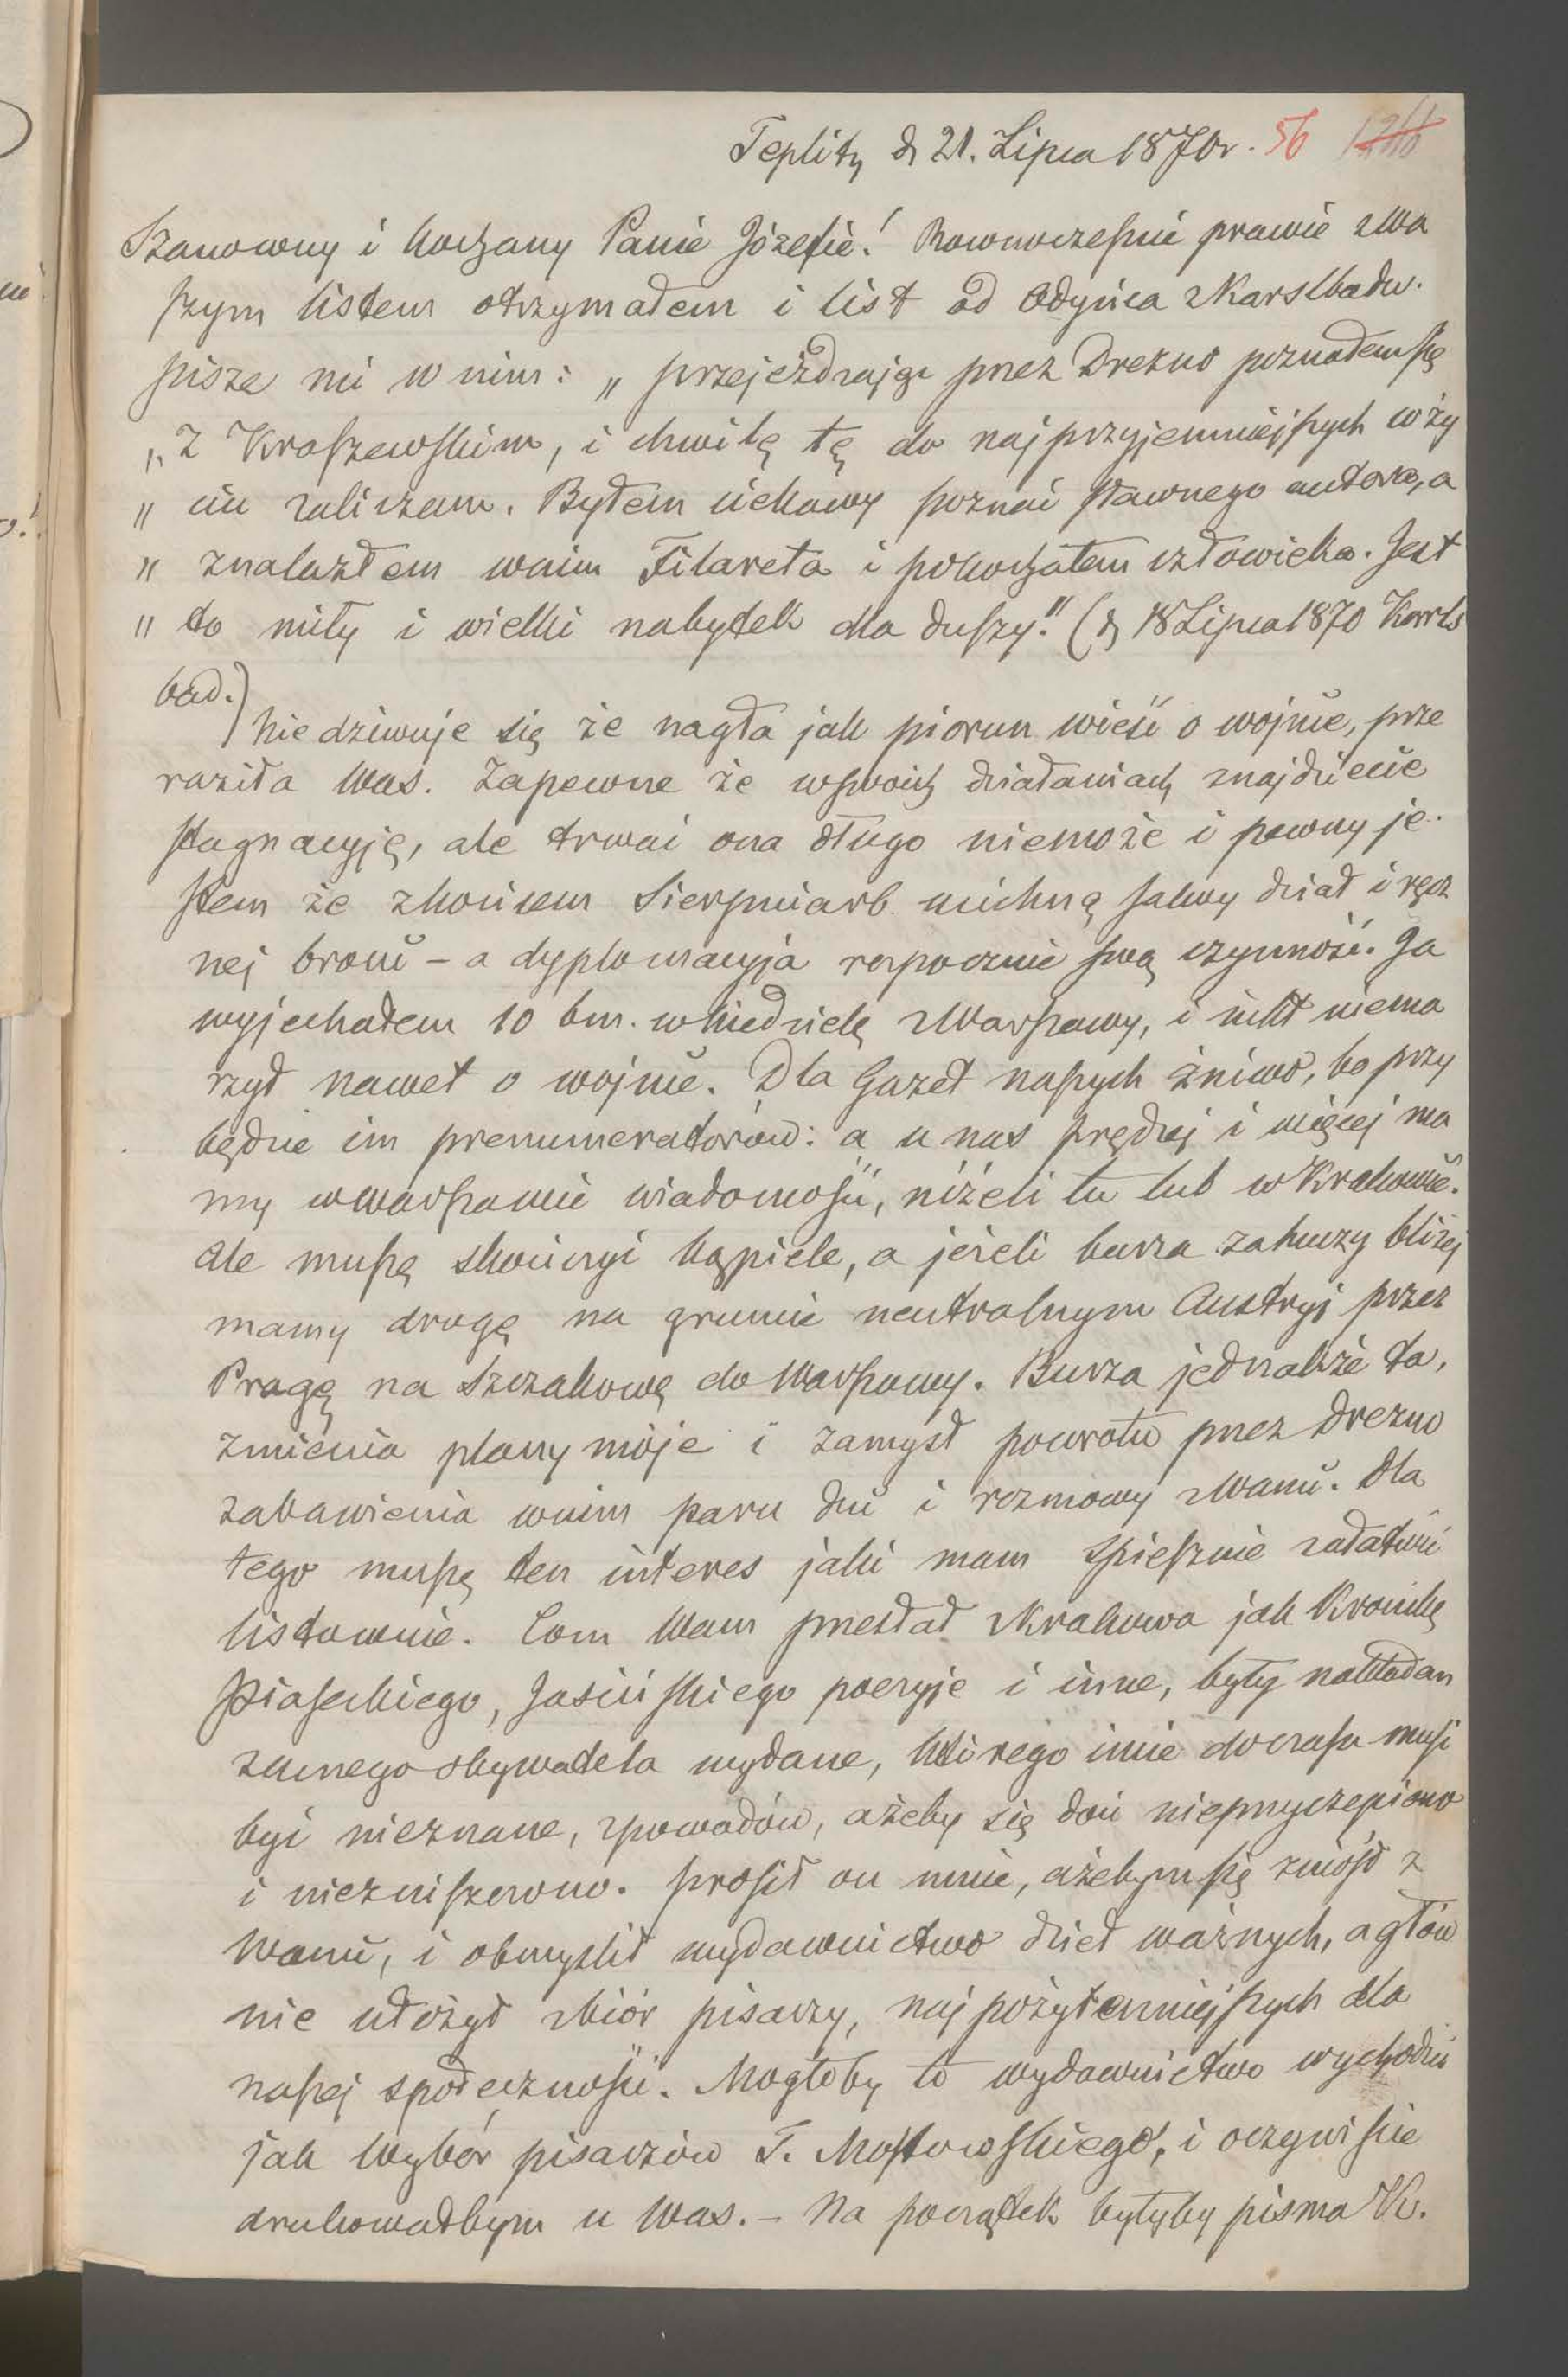 Teplitz d 21. Lipca 1870r. 56
Szanowny i kochany Panie Józefie! Rownocześnie prawie zWa
szym listem otrzymałem i list od Odyńca zKarslbadu.
pisze mi w nim: „ przejeżdżając przez Drezno poznałem się
„ Z Kraszewskim, i chwilę tę do najprzyjemniejszych w ży
„ ciu zaliczam. Byłem ciekawy poznać sławnego autora, a
„ znalazłem wnim Filareta i pokochałem człowieka. Jest
„ to miły i wielki nabytek dla duszy." (d 18 Lipca 1870 Karls
bad.)
Nie dziwuje się że nagła jak piorun wieść o wojnie, prze
raziła Was. Zapewne że wswoich działaniach znajdziecie
stagnacyję, ale trwać ona długo niemoże i pewny je-
stem że zkońcem Sierpnia r b. ucichną salwy dział i ręcz
nej broni – a dyplomacyja rozpocznie swą czynność. Ja
wyjechałem 10 bm. wNiedzielę zWarszawy, i nikt niema
rzył nawet o wojnie. Dla Gazet naszych żniwo, bo przy
będzie im prenumeratorów: a u nas prędzej i więcej ma
my wWarszawie wiadomości, niżeli tu lub w Krakowie.
Ale muszę skończyć kąpiele, a jeżeli burza zahuczy bliżej
mamy drogę na gruncie neutralnym Austryi przez
Pragę na Szczakowę do Warszawy. Burza jednakże ta,
zmienia plany moje i zamysł powrotu przez Drezno
zabawienia wnim paru dni i rozmowy zWami. Dla
tego muszę ten interes jaki mam spiesznie załatwić
listownie. Com Wam przesłał zKrakowa jak Kronikę
Piaseckiego, Jasińskiego poezyje i inne, były nakładem
zacnego obywatela wydane, którego imie do czasu musi
być nieznane, zpowodów, ażeby się doń nieprzyczepiono
i niezniszczono. prosił on mnie, ażebym się zniósł z
Wami, i obmyślił wydawnictwo dzieł ważnych, a głów
nie ułożył zbiór pisarzy, najpożyteczniejszych dla
naszej społeczności. Mogłoby to wydawnictwo wychodzić
jak Wybór pisarzów T. Mostowskiego, i oczywiście
drukowałbym u Was. – Na początek byłyby pisma W.